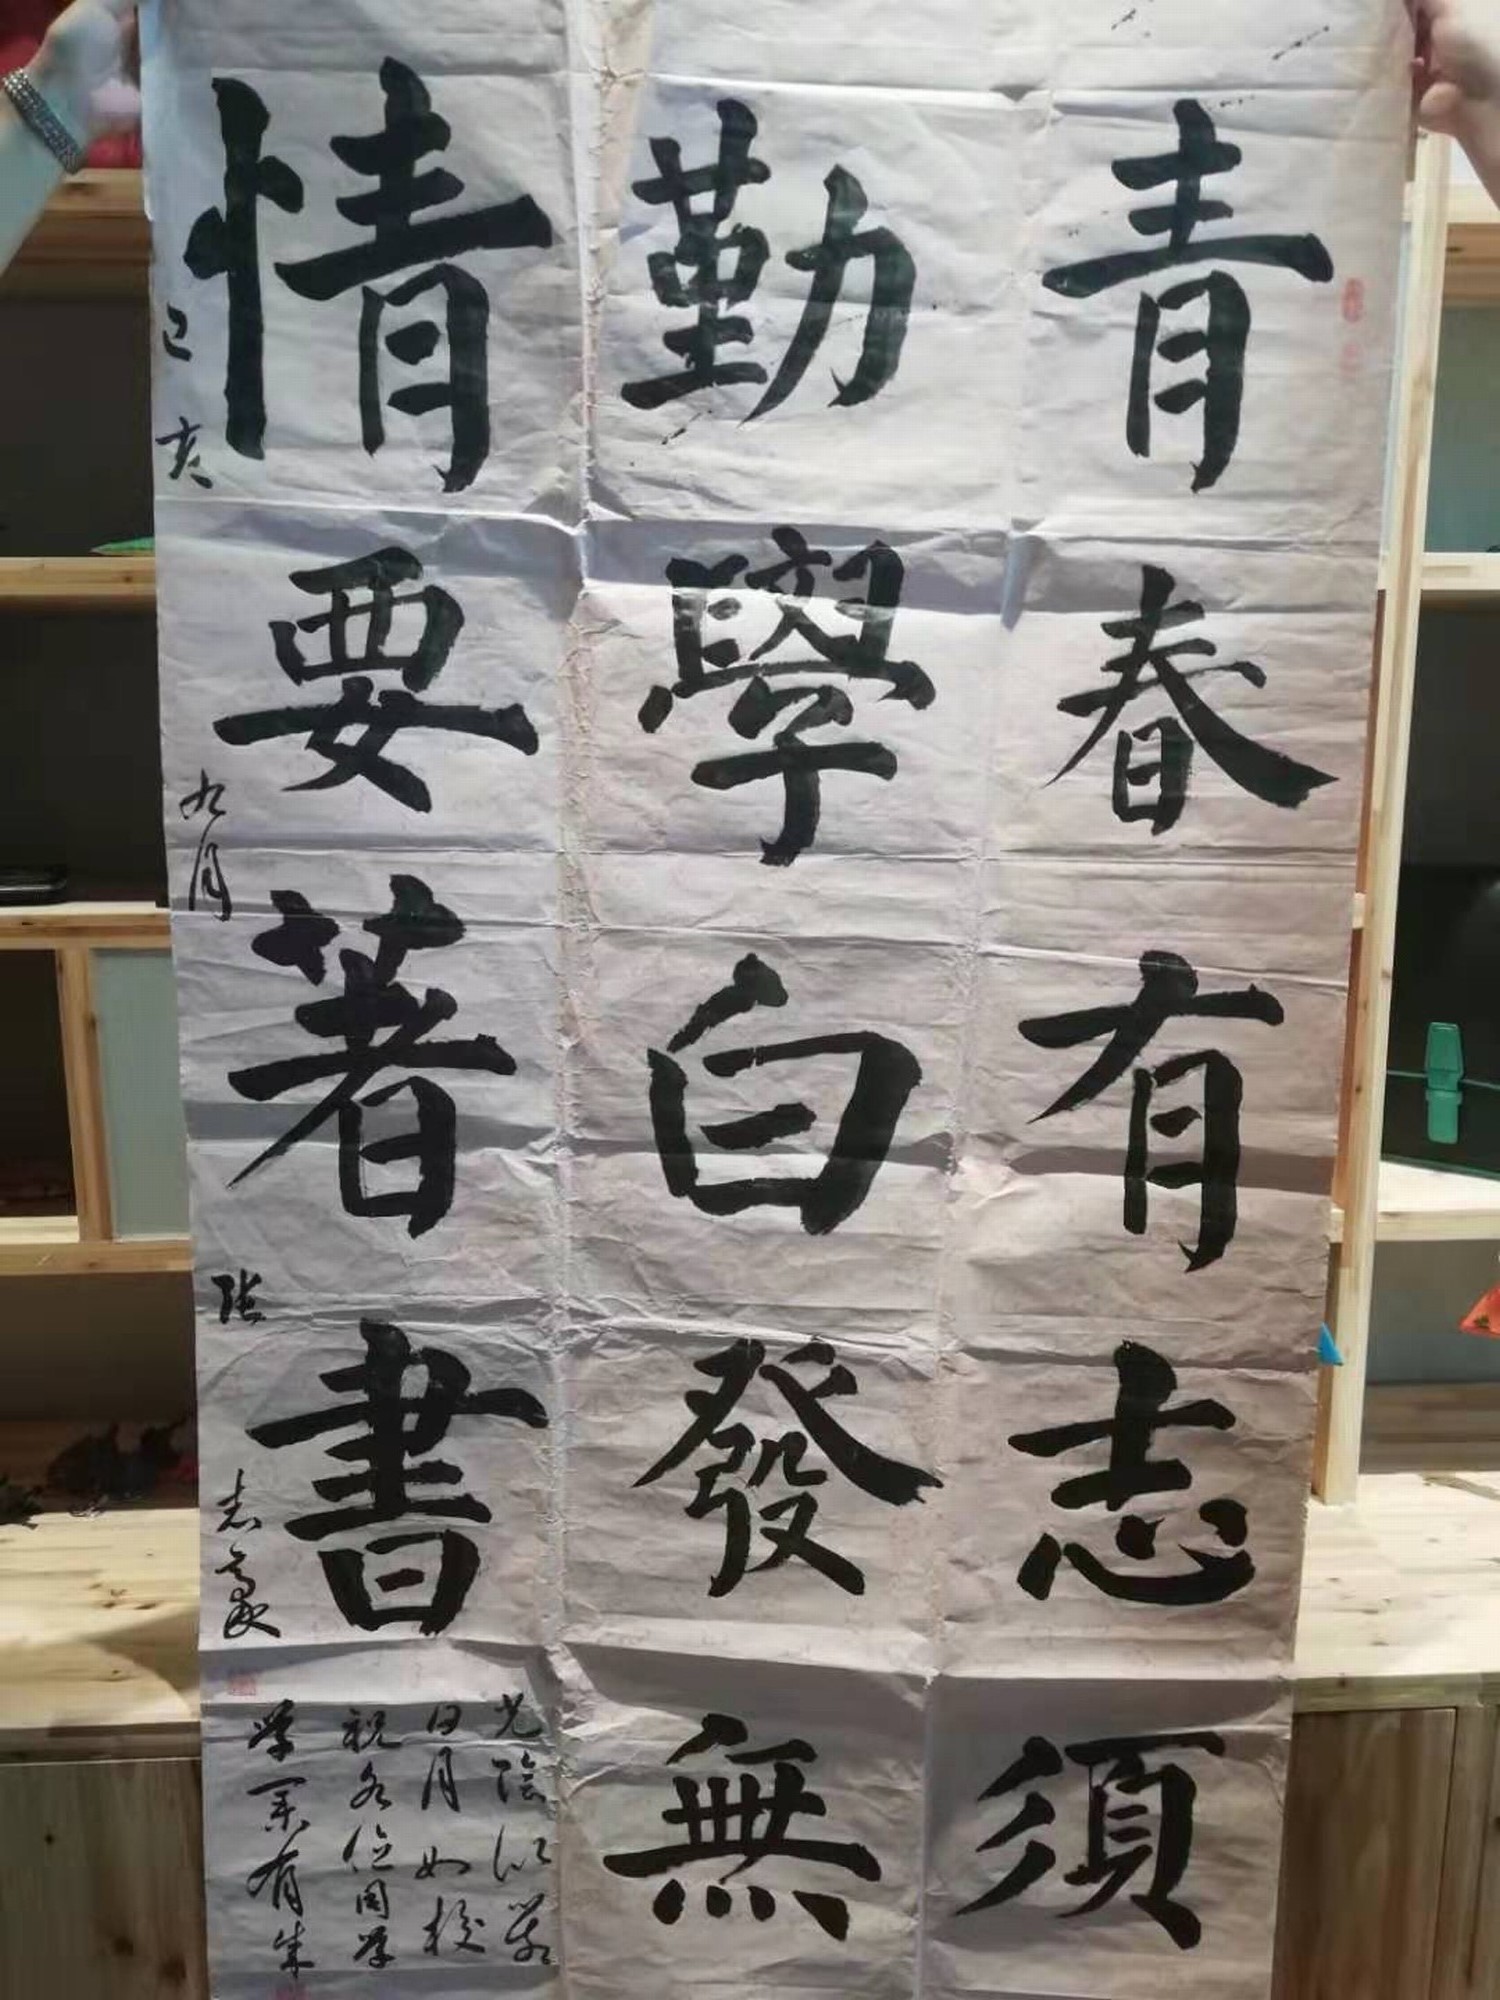 青春有志須
勤學白發無
情要著書
己亥 九月 张志豪
光陰似箭
日月如梭
祝各位同学
学業有成